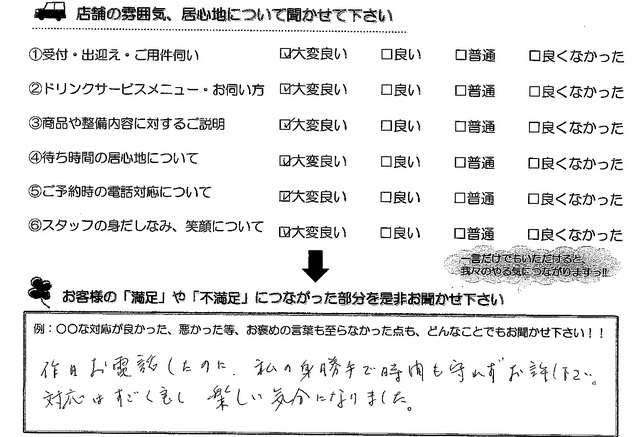 店舗の雰囲気、居心地について聞かせて下さい
①受付・出迎え・ご用件伺い ☑大変良い □良い □普通 □良くなかった
②ドリンクサービスメニュー・お伺い方 ☑大変良い □良い □普通 □良くなかった
③商品や整備内容に対するご説明 ☑大変良い □良い □普通 □良くなかった
④待ち時間の居心地について ☑大変良い □良い □普通 □良くなかった
⑤ご予約時の電話対応について ☑大変良い □良い □普通 □良くなかった
⑥スタッフの身だしなみ、笑顔について ☑大変良い □良い □普通 □良くなかった
一言だけでもいただけると、
我々のやる気につながりますっ!!
お客様の「満足」や「不満足」につながった部分を是非お聞かせ下さい
例：〇〇な対応が良かった、悪かった等、お褒めの言葉も至らなかった点も、どんなことでもお聞かせ下さい！！
昨日お電話したのに、私の身勝手で時間も守れずお許し下さい。
対応はすごく良く 楽しい気分になりました。